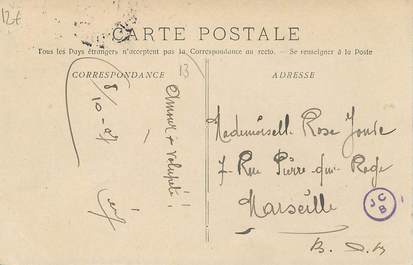 12f
CARTE POSTALE
Tous les Pays étrangers n'acceptent pas la Correspondance au recto. — Se renseigner à la Poste
CORRESPONDANCE
13
ADRESSE
8/10-07
Amour & volupté!
Mademoisell. Rose
7. Rue Pierre-qui-Rage
Marseille
B. D. R
J C
B